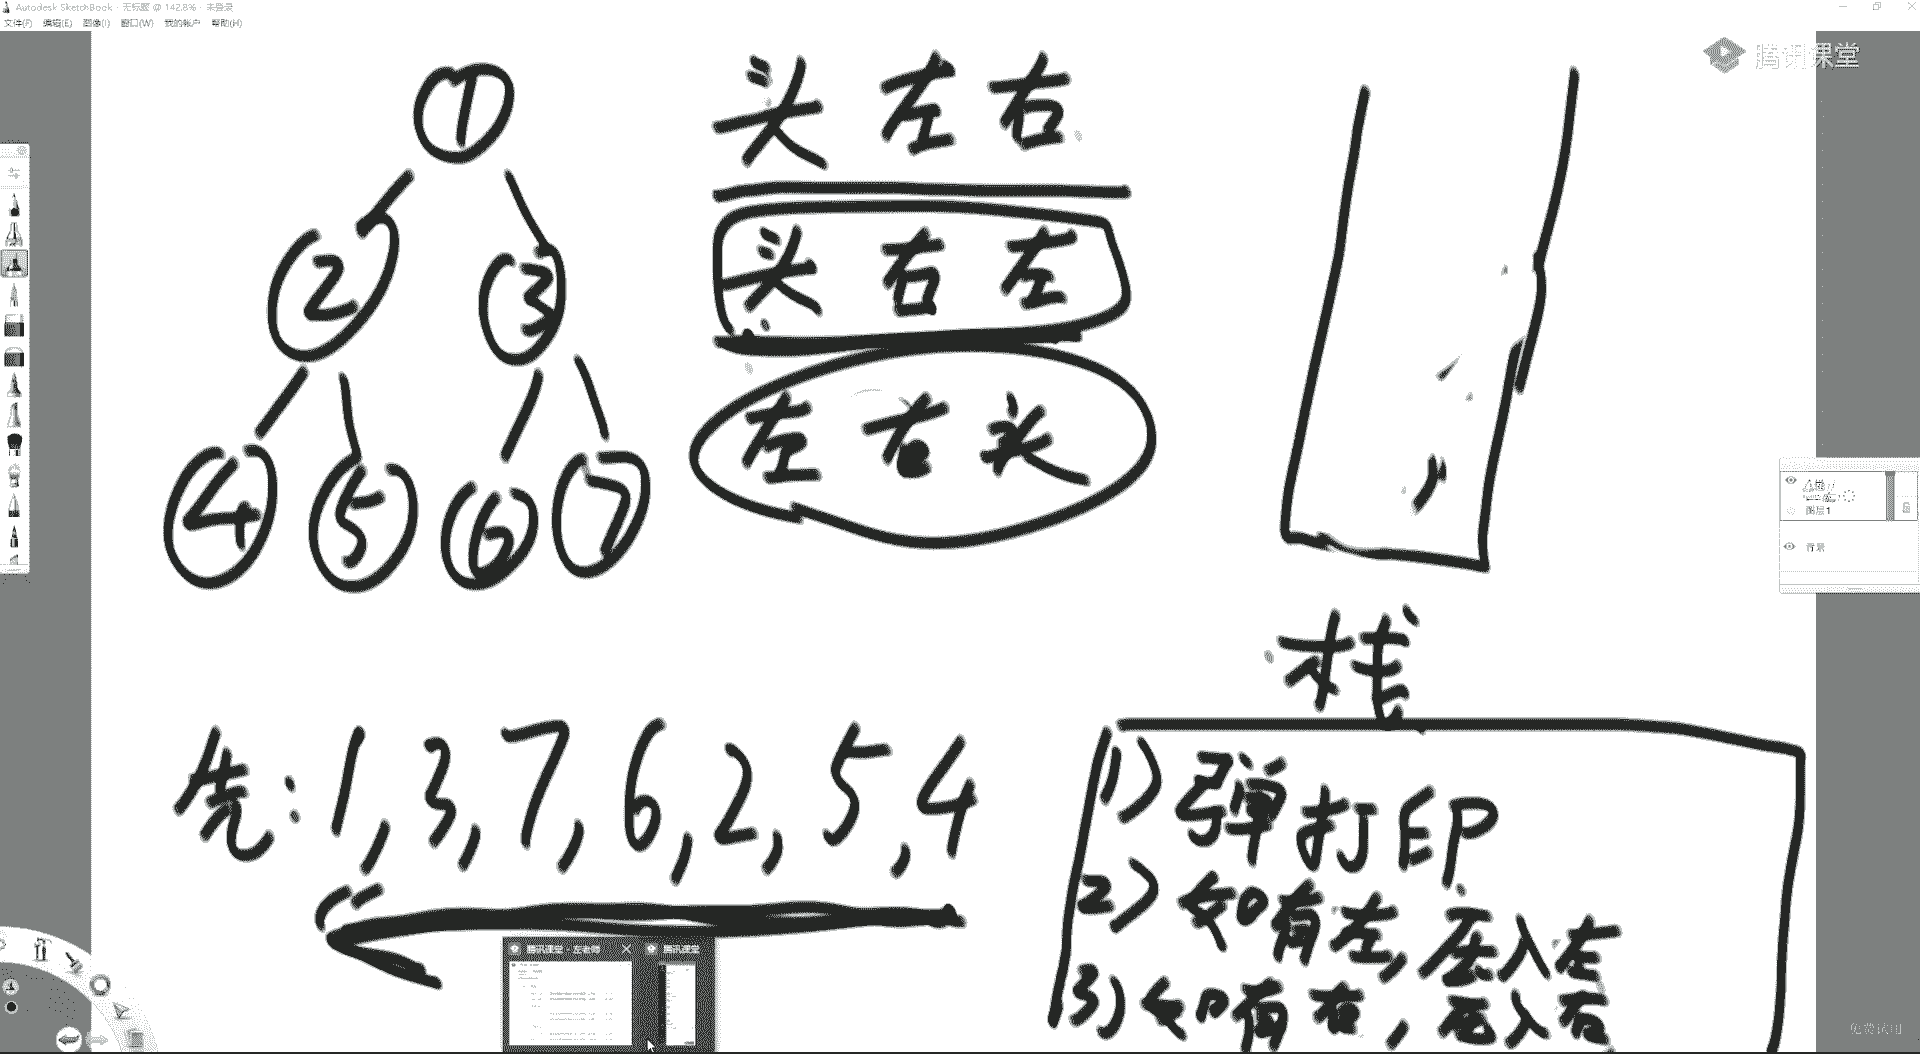 Autodesk SketchBook - 无标题 @ 142.8% - 未登录
文件(F) 编辑(E) 图像(I) 窗口(W) 我的帐户 帮助(H)
腾讯课堂
1
2 3
4 5 6 7
头 左 右
头 右 左
左 右 头
栈
先: 1, 3, 7, 6, 2, 5, 4
1) 弹 打印
2) 如有左, 压入左
3) 如有右, 压入右
图层1
背景
腾讯课堂 - 左老师
腾讯课堂
免费试用